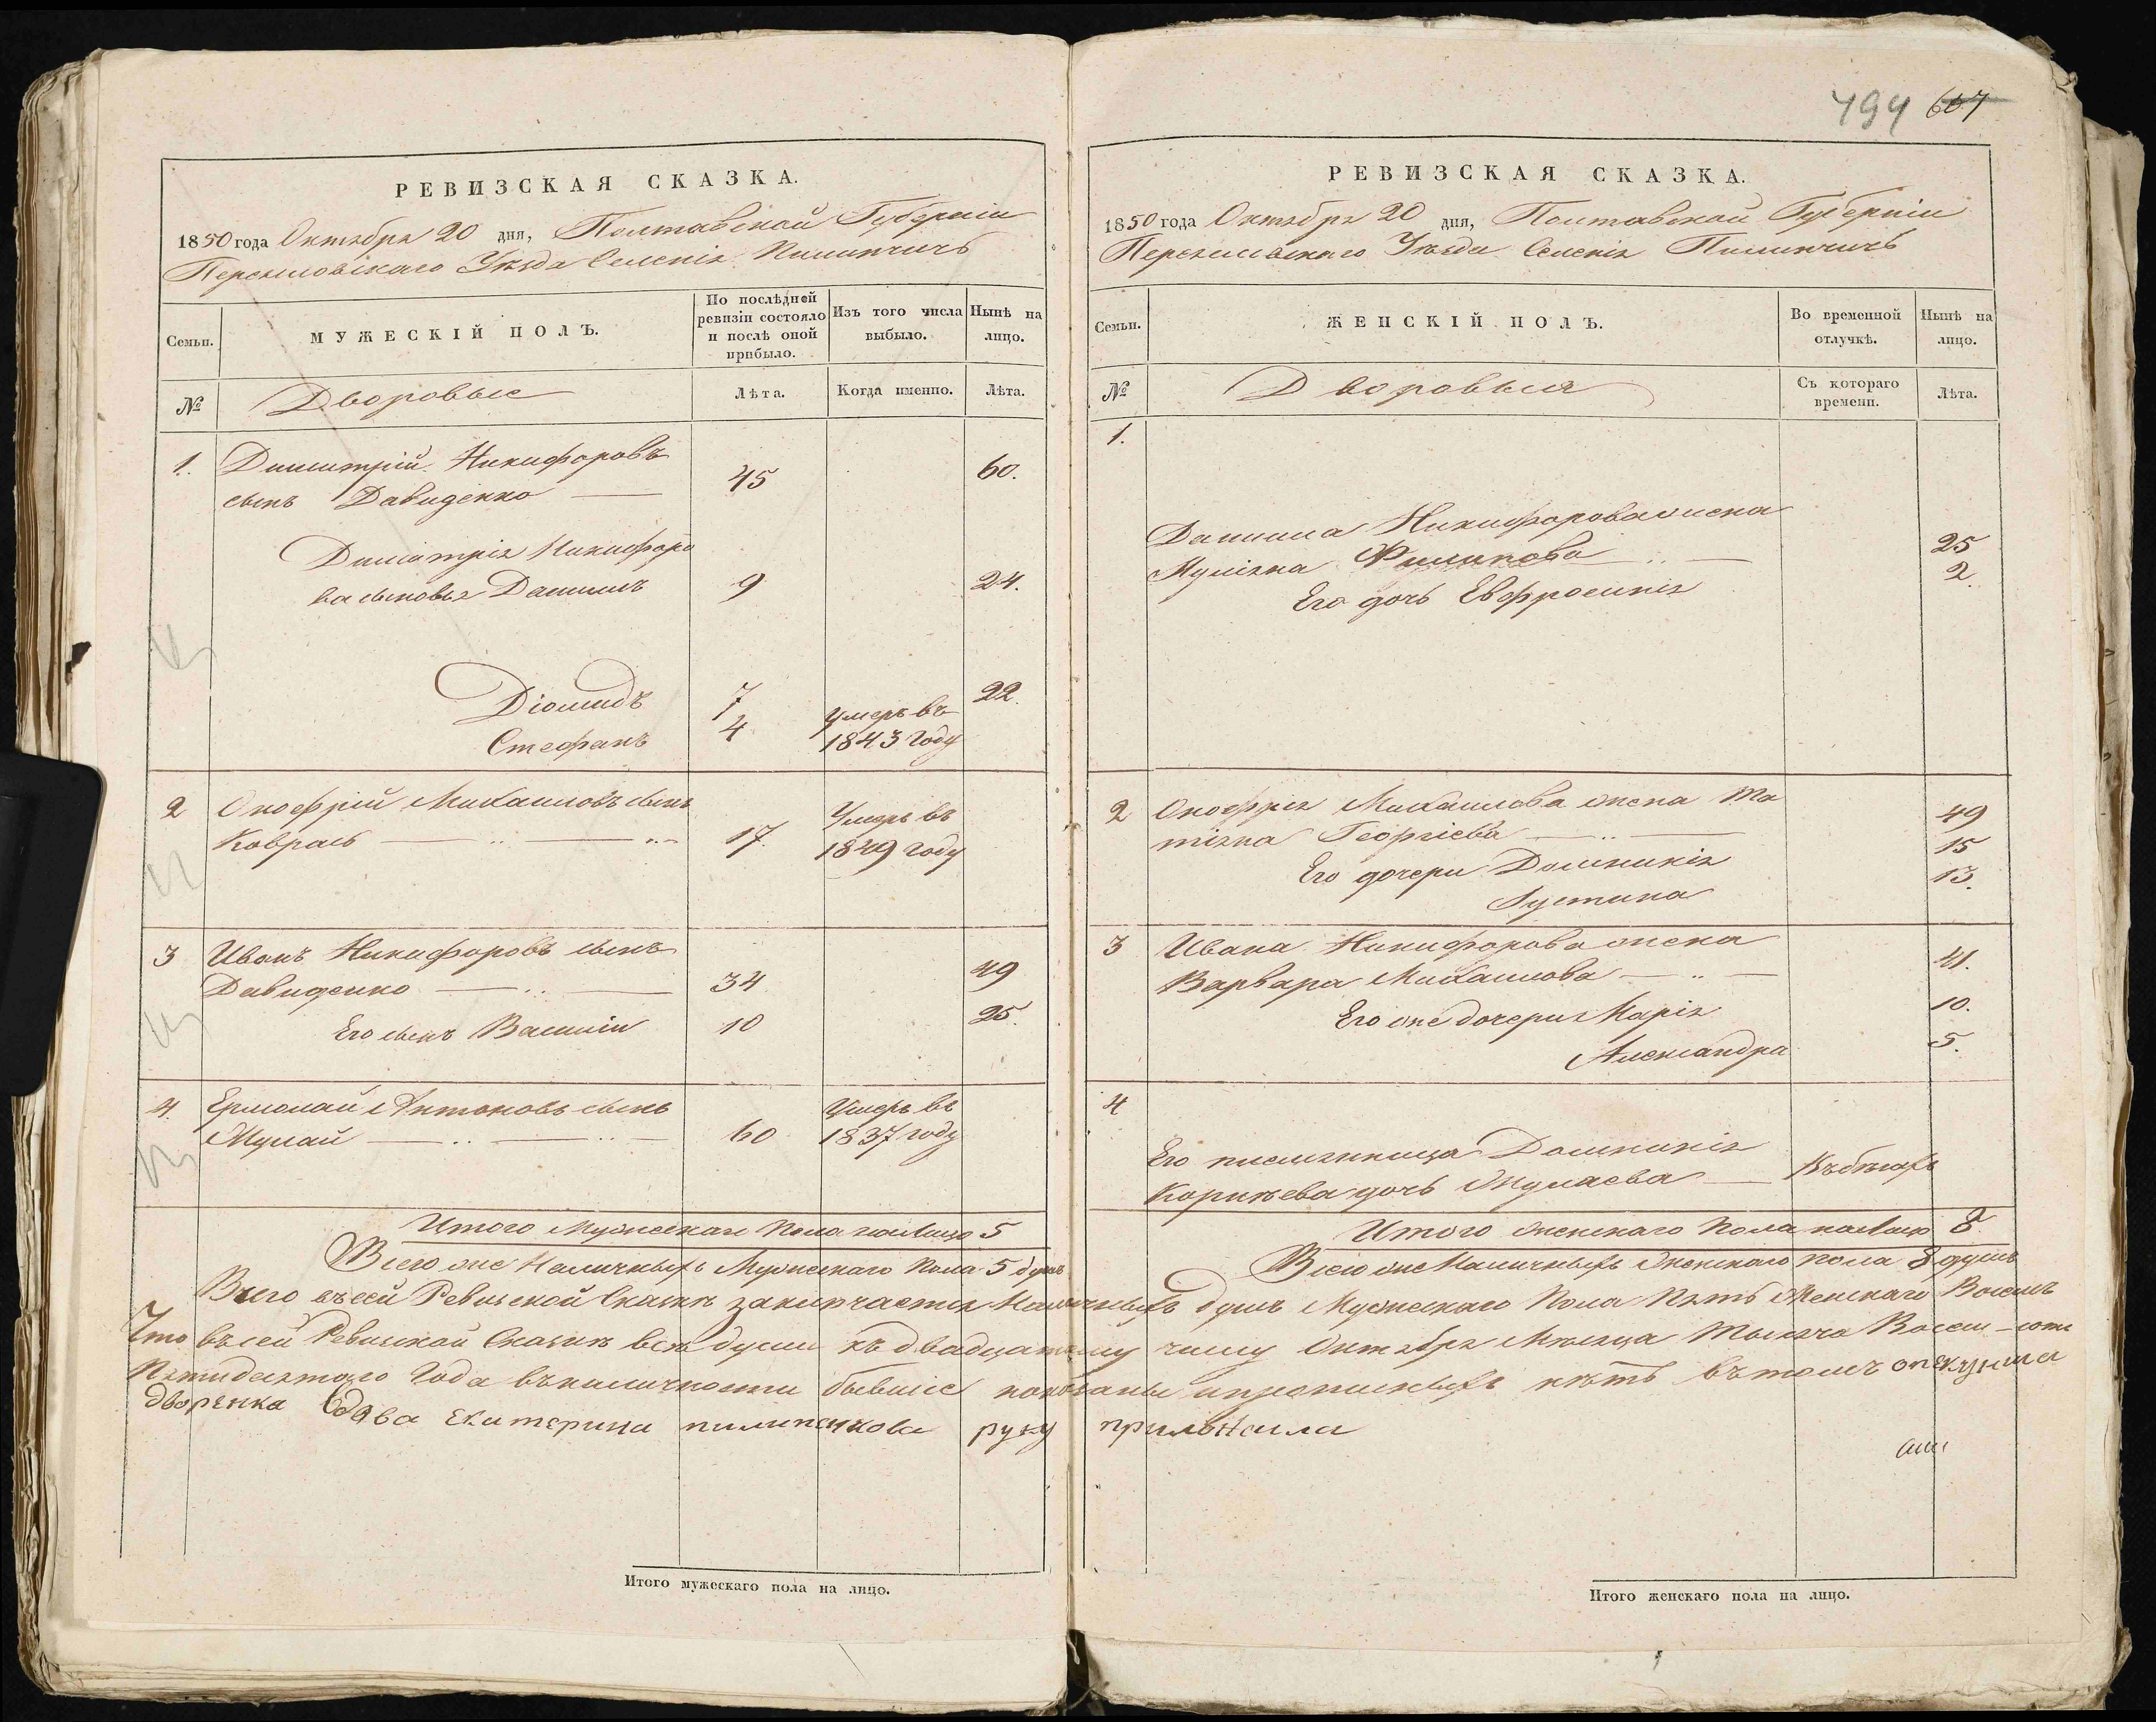 794 607
РЕВИЗСКАЯ СКАЗКА.
1850 года Октября 20 дня, Полтавской Губерніи
Переяловскаго Уѣзда Селенія Пилипчичь
Семьи.
МУЖЕСКІЙ ПОЛЪ.
По послѣдней ревизіи состояло и послѣ оной прибыло.
Изъ того числа выбыло.
Нынѣ на лицо.
№
Дворовые
Лѣта.
Когда именно.
Лѣта.
1. Димитрій Никифоровъ
сынъ Давиденко — 45 60.
Димитрія Никифоро
ва сыновья Даніилъ 9 24.
Діомидъ 7 22.
Стефанъ 4 умеръ въ
1843 году
2 Онофрій Михаиловъ сынъ
Коврай — 17. Умеръ въ
1849 году
3 Иванъ Никифоровъ сынъ
Давиденко — 34 49
Его сынъ Василій 10 25.
4. Ермолай Антоновъ сынъ
Мулай — 60 Умеръ въ
1837 году
Итого Мужескаго Пола на лицо 5
Всего же Наличныхъ Мужескаго Пола 5 душъ
РЕВИЗСКАЯ СКАЗКА.
1850 года Октября 20 дня, Полтавской Губерніи
Переяславскаго Уѣзда Селенія Пилипчичь
Семьи.
ЖЕНСКІЙ ПОЛЪ.
Во временной отлучкѣ.
Нынѣ на лицо.
№
Дворовыя
Съ котораго времени.
Лѣта.
1.
Даниила Никифорова жена
Филипова — 25
Его дочь Евфросинія 2
2 Онофрія Михаилова жена Та
тіяна Георгіева — 49
Его дочери Домникія 15
Іустина 13.
3 Ивана Никифорова жена
Варвара Михаилова — 41.
Его же дочери Марія 10.
Александра 5.
4
Его племянница Домникія
Корнѣева дочь Акулаева — Въ бѣгахъ
Итого женскаго пола на лицо 8
Всего же Наличныхъ Женскаго пола 8 душъ
Всего въ сей Ревизской Сказкѣ заключается Наличныхъ душъ Мужескаго Пола Пять Женскаго Восемь
Что въ сей Ревизской Сказкѣ всѣ души къ двадцатому числу Октября Мѣсяца Тысяча Восем-сотъ
Пятидесятого Года въ наличности бывшіе показаны и прописныхъ нѣтъ въ томъ опекунша
дворенка вдава Екатерина пилипенкова руку приложила
Итого мужескаго пола на лицо.
Итого женскаго пола на лицо.